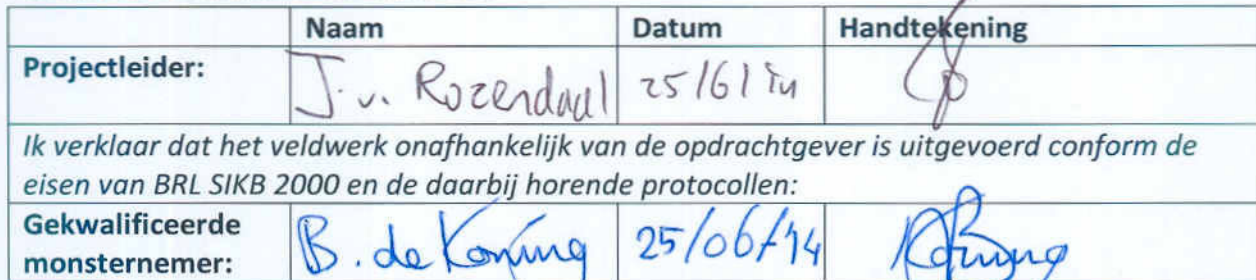 Naam Datum Handtekening
Projectleider: J. v. Rozendaal 25/6/14
Ik verklaar dat het veldwerk onafhankelijk van de opdrachtgever is uitgevoerd conform de
eisen van BRL SIKB 2000 en de daarbij horende protocollen:
Gekwalificeerde
monsternemer: B. de Koning 25/06/14